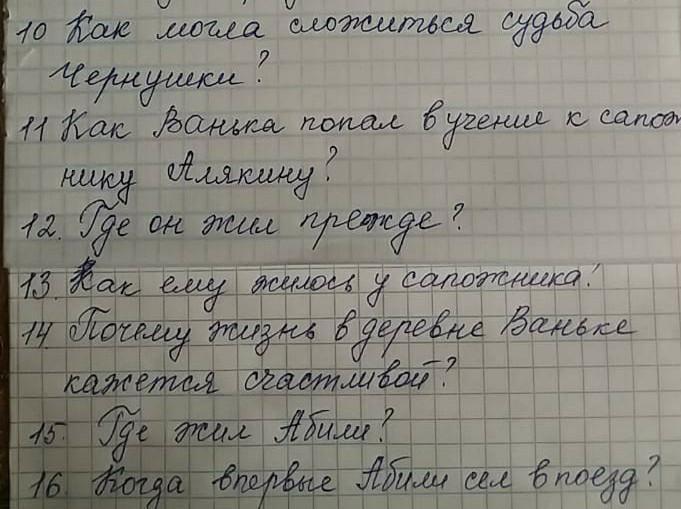 10 Как могла сложиться судьба
Чернушки?
11 Как Ванька попал в учение к сапож
нику Алякину?
12. Где он жил прежде?
13. Как ему жилось у сапожника?
14 Почему жизнь в деревне Ваньке
кажется счастливой?
15. Где жил Абили?
16. Когда впервые Абили сел в поезд?